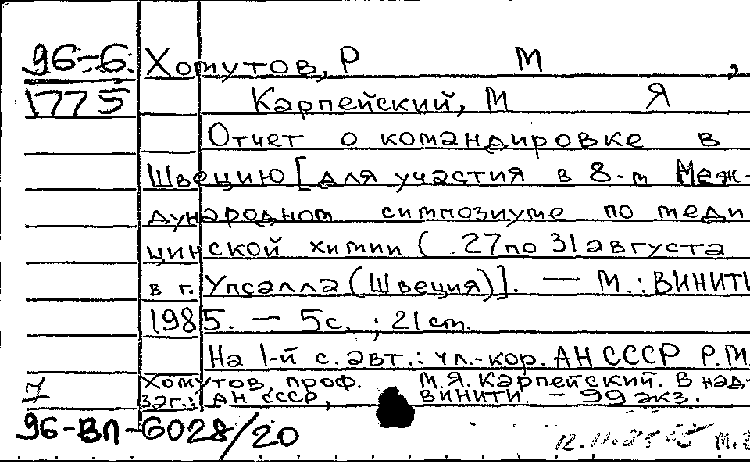 96-6 Хомутов, Р М ,
1775 Карпейский, М Я
Отчет о командировке в
Швецию [для участия в 8-м Меж-
дународном симпозиуме по меди
цинской химии ( . 27 по 31 августа
в г. Упсалла (Швеция)]. — М.: ВИНИТИ
1985. — 5 с. ; 21 см.
На 1-й с. авт.: чл.-кор. АН СССР Р.М.
Хомутов, проф. М.Я. Карпейский. В над-
заг.: АН СССР, ВИНИТИ — 99 экз.
96-ВП-6028/20